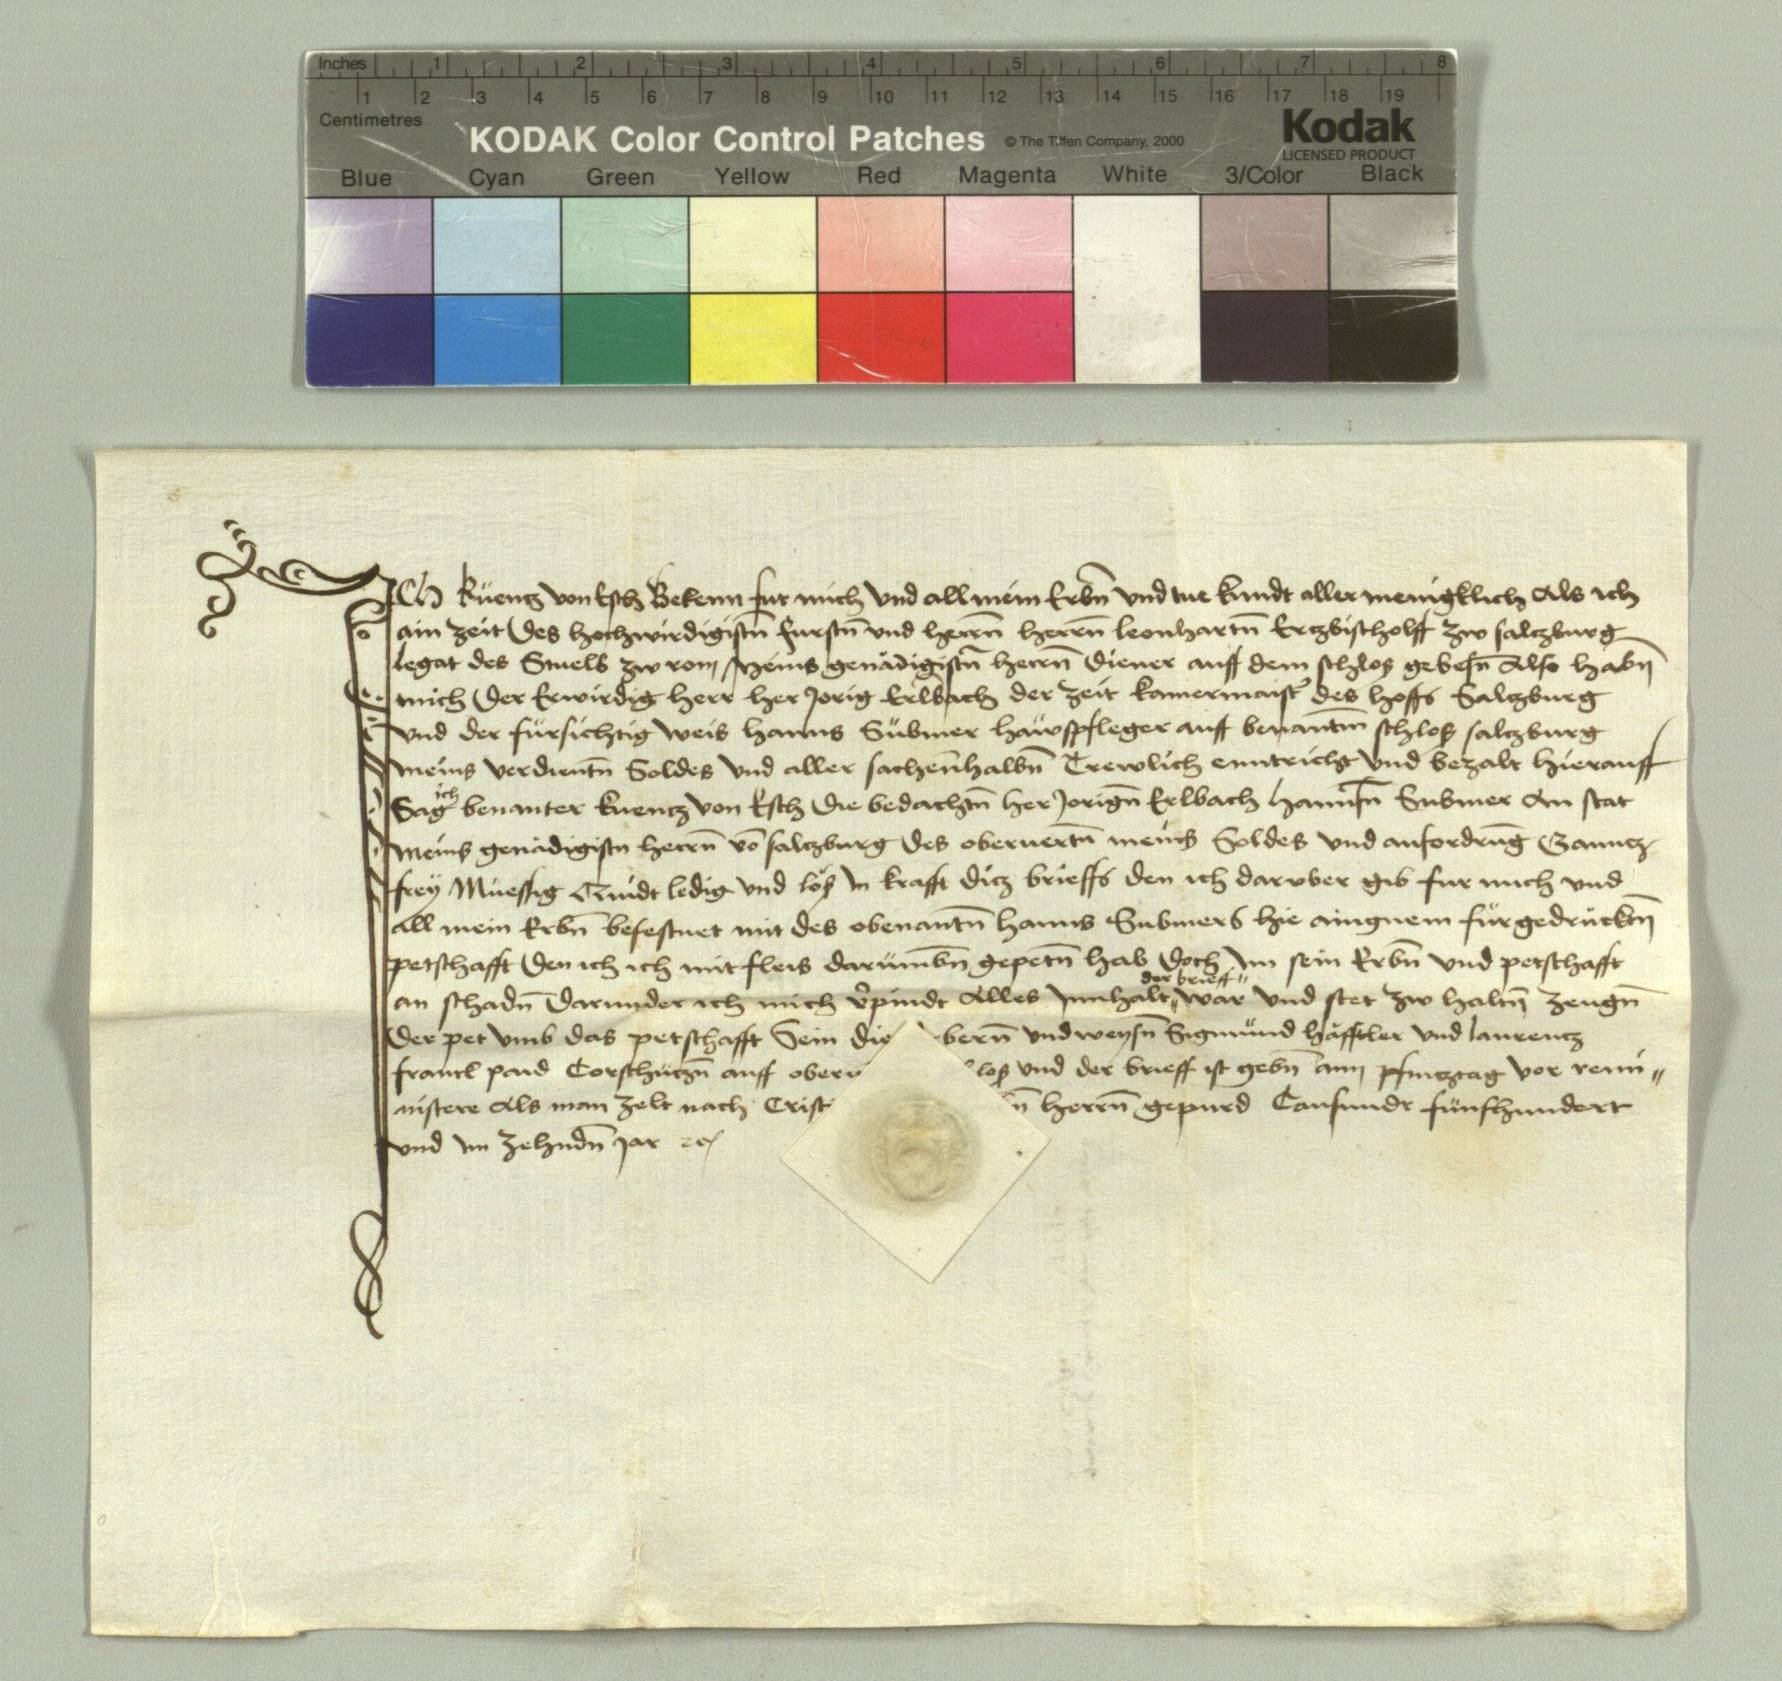 Inches 1 2 3 4 5 6 7 8
1 2 3 4 5 6 7 8 9 10 11 12 13 14 15 16 17 18 19
Centimetres
KODAK Color Control Patches © The Tiffen Company, 2000 Kodak
LICENSED PRODUCT
Blue Cyan Green Yellow Red Magenta White 3/Color Black
Ich Küentz von Esch Bekenn fur mich vnd all mein Erbn̄ vnd tue kundt aller menigklich Als ich
ain zeit Des hochwirdigistn̄ furstn̄ vnd herrn̄ herrn̄ leonhartn̄ Ertzbischolff zw saltzburg
legat des Stuels zw rom Meins genädigistn̄ herrn̄ Diener auff dem schlos gebesn̄ Also habn̄
mich Der Erwirdig herr her Jorig Erlbach der zeit kamermaister des hoffs Saltzburg
vnd der fürsichtig weis hanns Sübmer hauspfleger auff benantm̄ schlos saltzburg
meins verdientn̄ Soldes vnd aller sachenhalbn̄ Trewlich enntricht vnd bezalt hierauff
Sag ich benanter kuentz von Esch die bedachtn̄ her Jorign̄ Erlbach hannsn̄ Submer An stat
meins genädigistn̄ herrn̄ vō saltzburg des oberuertn̄ meins Soldes vnd anfordrung Ganntz
frey Müessig Quidt ledig vnd los In krafft ditz brieffs den ich darvber gib fur mich vnd
all mein Erbn̄ befestnet mit des obenantn̄ hanns Submers hie aingnem fürgedrücktn̄
petschafft Den ich ich mit fleis darumbn̄ gepetn̄ hab Doch Im sein Erbn̄ vnd petschafft
an schadn̄ Darunder ich mich v̄pindt Alles Innhalt der brieff war vnd stet zw haltn̄ zeugn̄
Der pet vmb das petschafft Sein die bern̄ vnd weysn̄ Sigmund häfftler vnd laurentz
franctl paid Torschützn̄ auff ober los vnd der brieff ist gebn̄ am pfintztag vor remi
nistere Als man zelt nach Cristi n̄ herrn̄ gepurd Tausundt fünfhundert
vnd Im zehndn̄ Jar